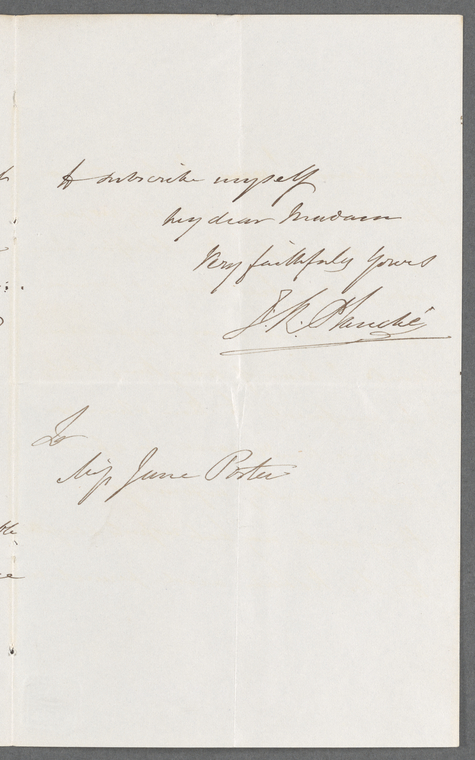 to subscribe myself
My dear Madam
Very faithfully Yours
J. R. Planché
To
Miss Jane Porter